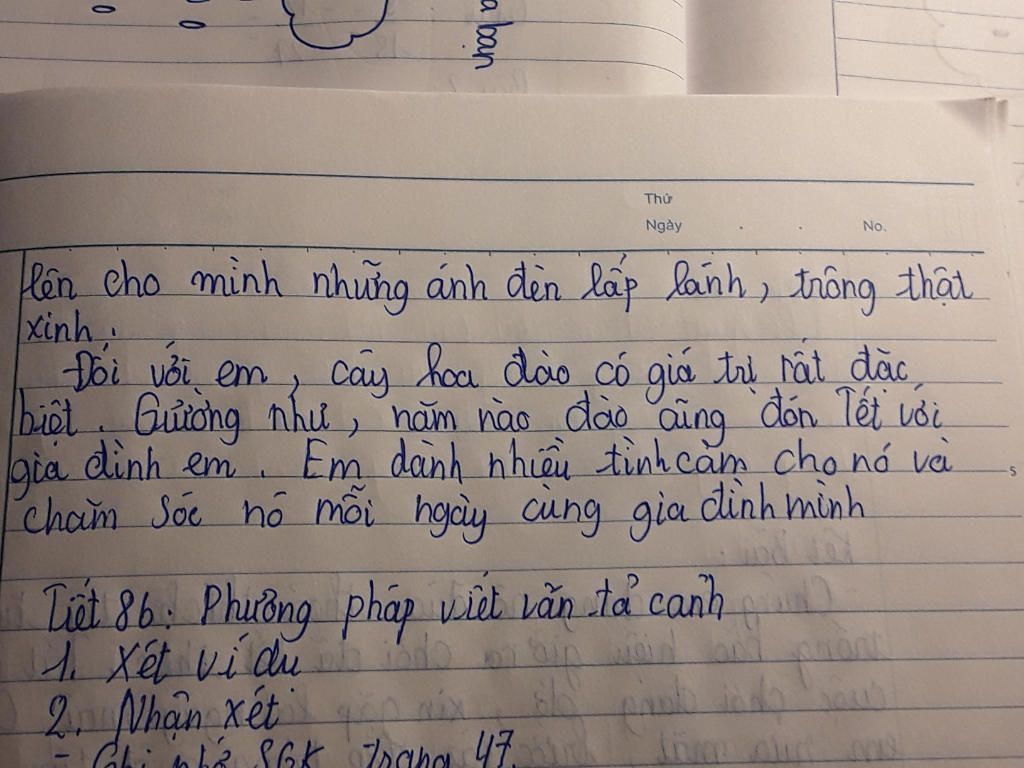 a bạn
Thứ
Ngày . . No.
lên cho mình những ánh đèn lấp lánh, trông thật
xinh.
Đối với em, cây hoa đào có giá trị rất đặc
biệt. Gường như, năm nào đào cũng đón Tết với
gia đình em. Em dành nhiều tình cảm cho nó và
chăm sóc nó mỗi ngày cùng gia đình mình
5
Tiết 86: Phương pháp viết văn tả cảnh
1. Xét ví dụ
2. Nhận xét
- Ghi nhớ SGK trang 47.